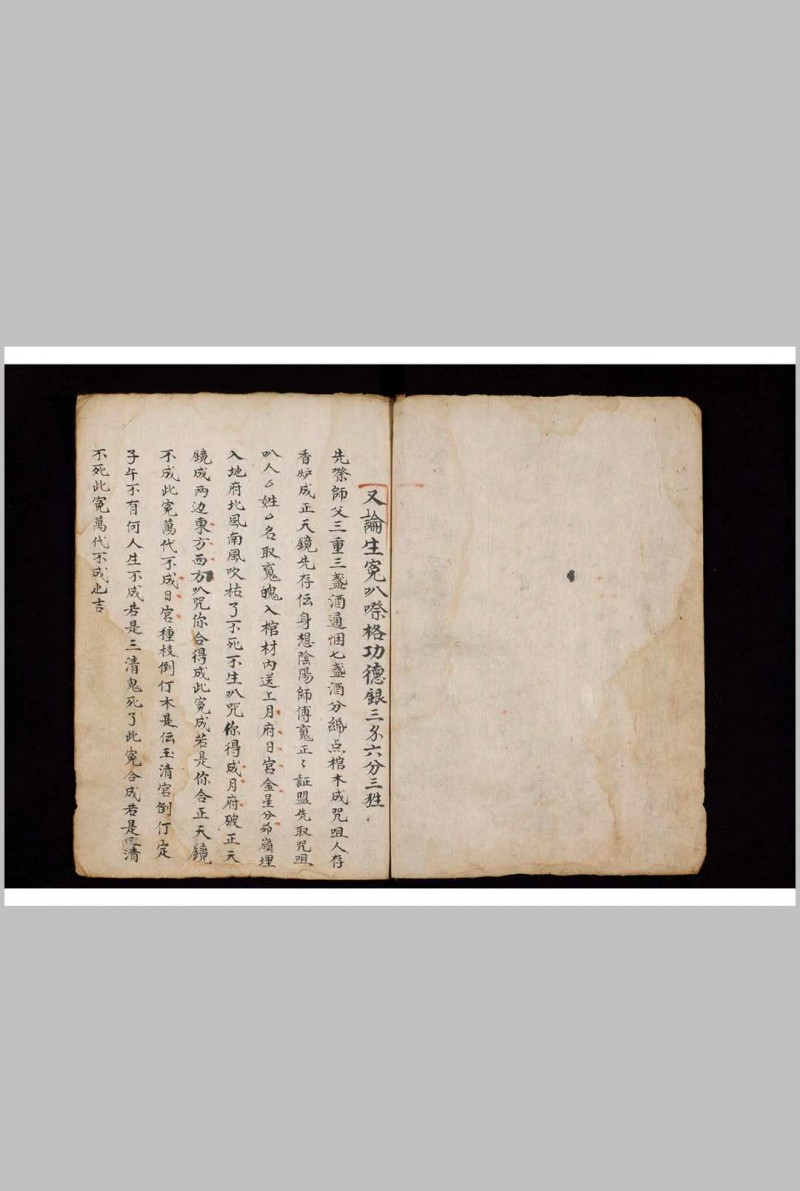 又論生冤㕥嘹格功德銀三分六分三牲
先嘹師父三重三盞酒通個七盞酒分綿点棺木成咒咀人存
香炉成正天鏡先存伝身想陰陽師傅䰟正〻証盟先取咒咀
㕥人厶姓厶名取䰟魄入棺材内送上月府日宮金星分茆嶺埋
入地府北風南風吹枯了不死不生㕥咒你得成月府破正天
鏡成两边東方西方㕥咒你合得成此冤成若是你合正天鏡
不成此冤萬代不成日宮種枝倒仃木是伝玉清宮倒仃定
子午不有何人生不成若是三清鬼死了此冤合成若是清
不死此冤萬代不成也吉